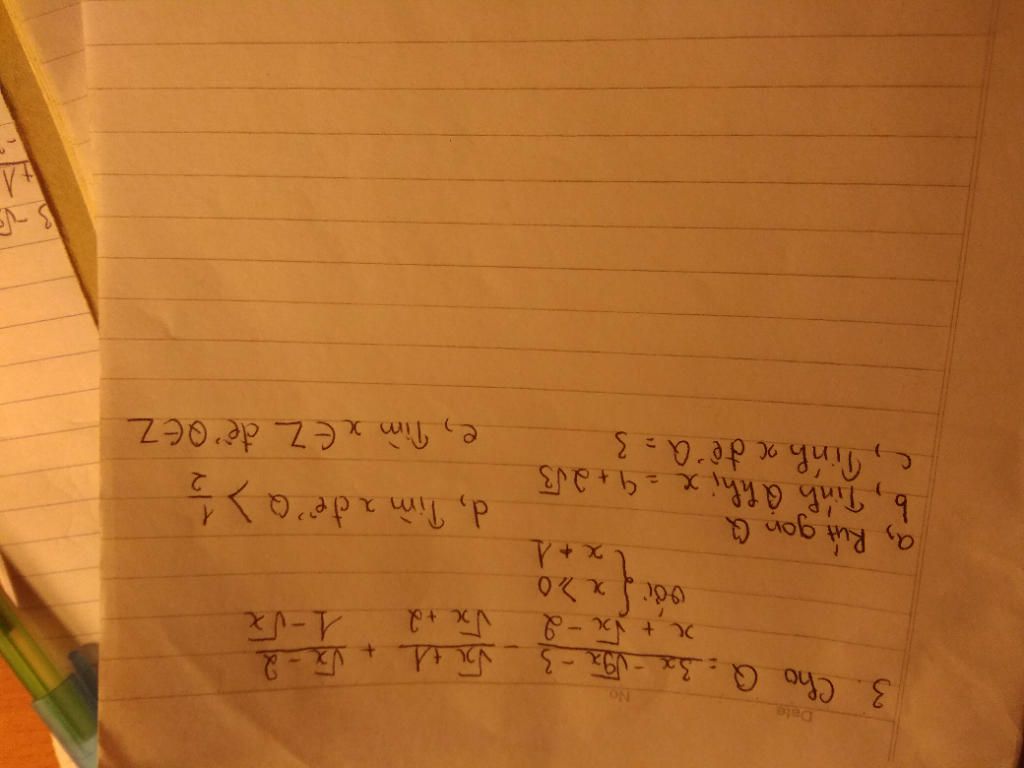 Date
No
3. Cho Q = (3x - √9x - 3)/(x + √x - 2) - (√x + 1)/(√x + 2) + (√x - 2)/(1 - √x)
với { x ≥ 0
x + 1
a, Rút gọn Q
b, Tính Q khi x = 4 + 2√3
c, Tính x để Q = 3
d, Tìm x để Q > 1/2
e, Tìm x ∈ Z để Q ∈ Z